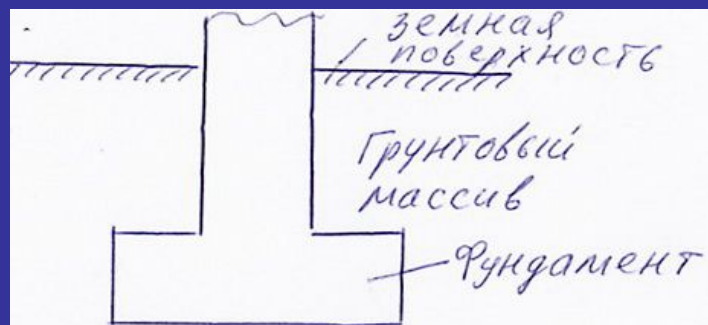 земная
поверхность
Грунтовый
массив
Фундамент